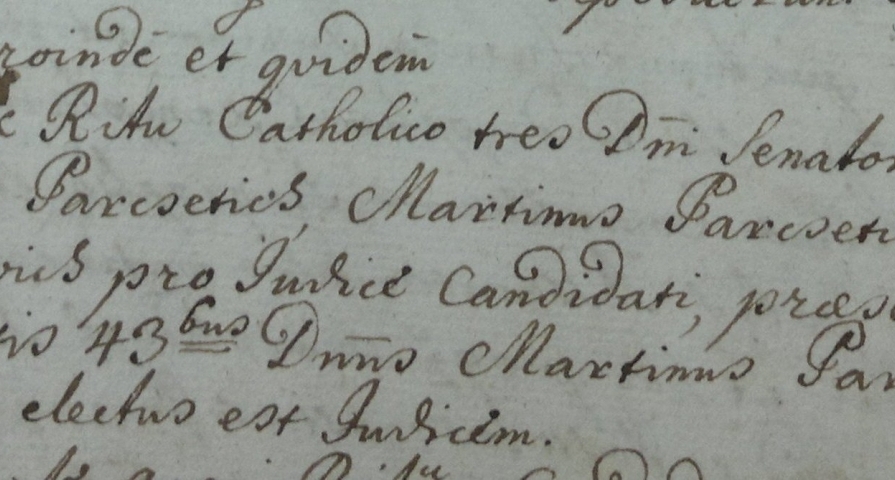 roindē et qvidem̄
Ritu Catholico tres Dm̄i Senator
Parcsetich, Martinus Parcseti
vich pro Iudice Candidati, præs
tis 43bus Dm̄ns Martinus Par
electus est Iudicem.